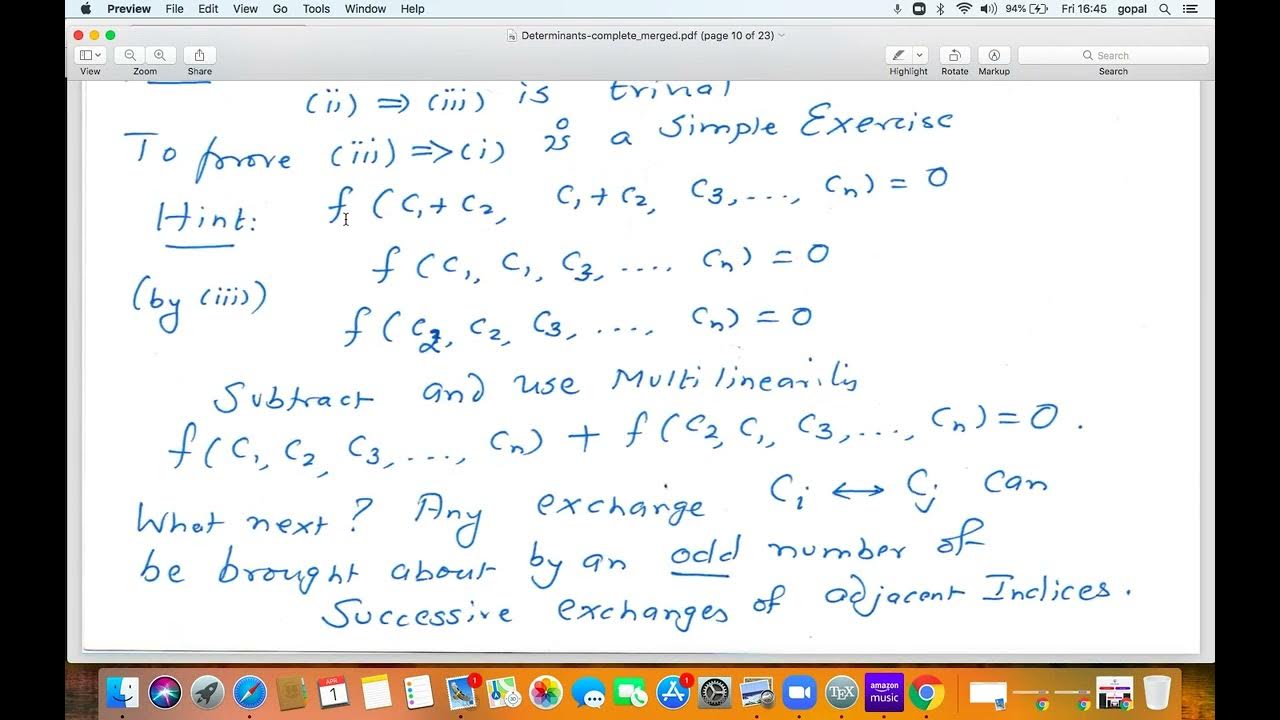 Preview File Edit View Go Tools Window Help 94% Fri 16:45 gopal
Determinants-complete_merged.pdf (page 10 of 23)
View Zoom Share Highlight Rotate Markup Search
Search
(ii) ⇒ (iii) is trivial
To prove (iii) ⇒ (i) is a Simple Exercise
Hint: f (C₁ + C₂, C₁ + C₂, C₃, ..., Cₙ) = 0
f (C₁, C₁, C₃, .... Cₙ) = 0
(by (iii))
f (C₂, C₂, C₃, ..., Cₙ) = 0
Subtract and use Multilinearity
f (C₁, C₂, C₃, ..., Cₙ) + f (C₂, C₁, C₃, ..., Cₙ) = 0 .
What next? Any exchange Cᵢ ↔ Cⱼ can
be brought about by an odd number of
Successive exchanges of adjacent Indices .
APR
1
1
1
TEX
amazon
music